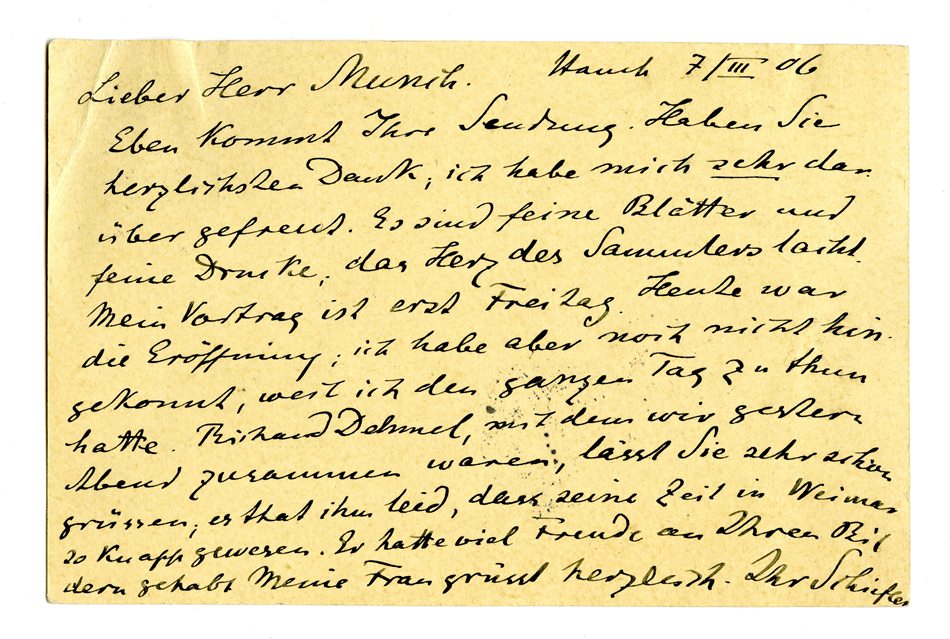 Hamb 7/III 06
Lieber Herr Munch.
Eben kommt Ihre Sendung. Haben Sie
herzlichsten Dank; ich habe mich sehr dar
über gefreut. Es sind feine Blätter und
feine Drucke; das Herz des Sammlers lacht.
Mein Vortrag ist erst Freitag. Heute war
die Eröffnung; ich habe aber noch nicht hin
gekonnt, weil ich den ganzen Tag zu thun
hatte. Richard Dehmel, mit dem wir gestern
Abend zusammen waren, lässt Sie sehr schön
grüssen; es that ihm leid, dass seine Zeit in Weimar
so knapp gewesen. Er hatte viel Freude an Ihren Bil
dern gehabt Meine Frau grüsst herzlich. Ihr Schiefler